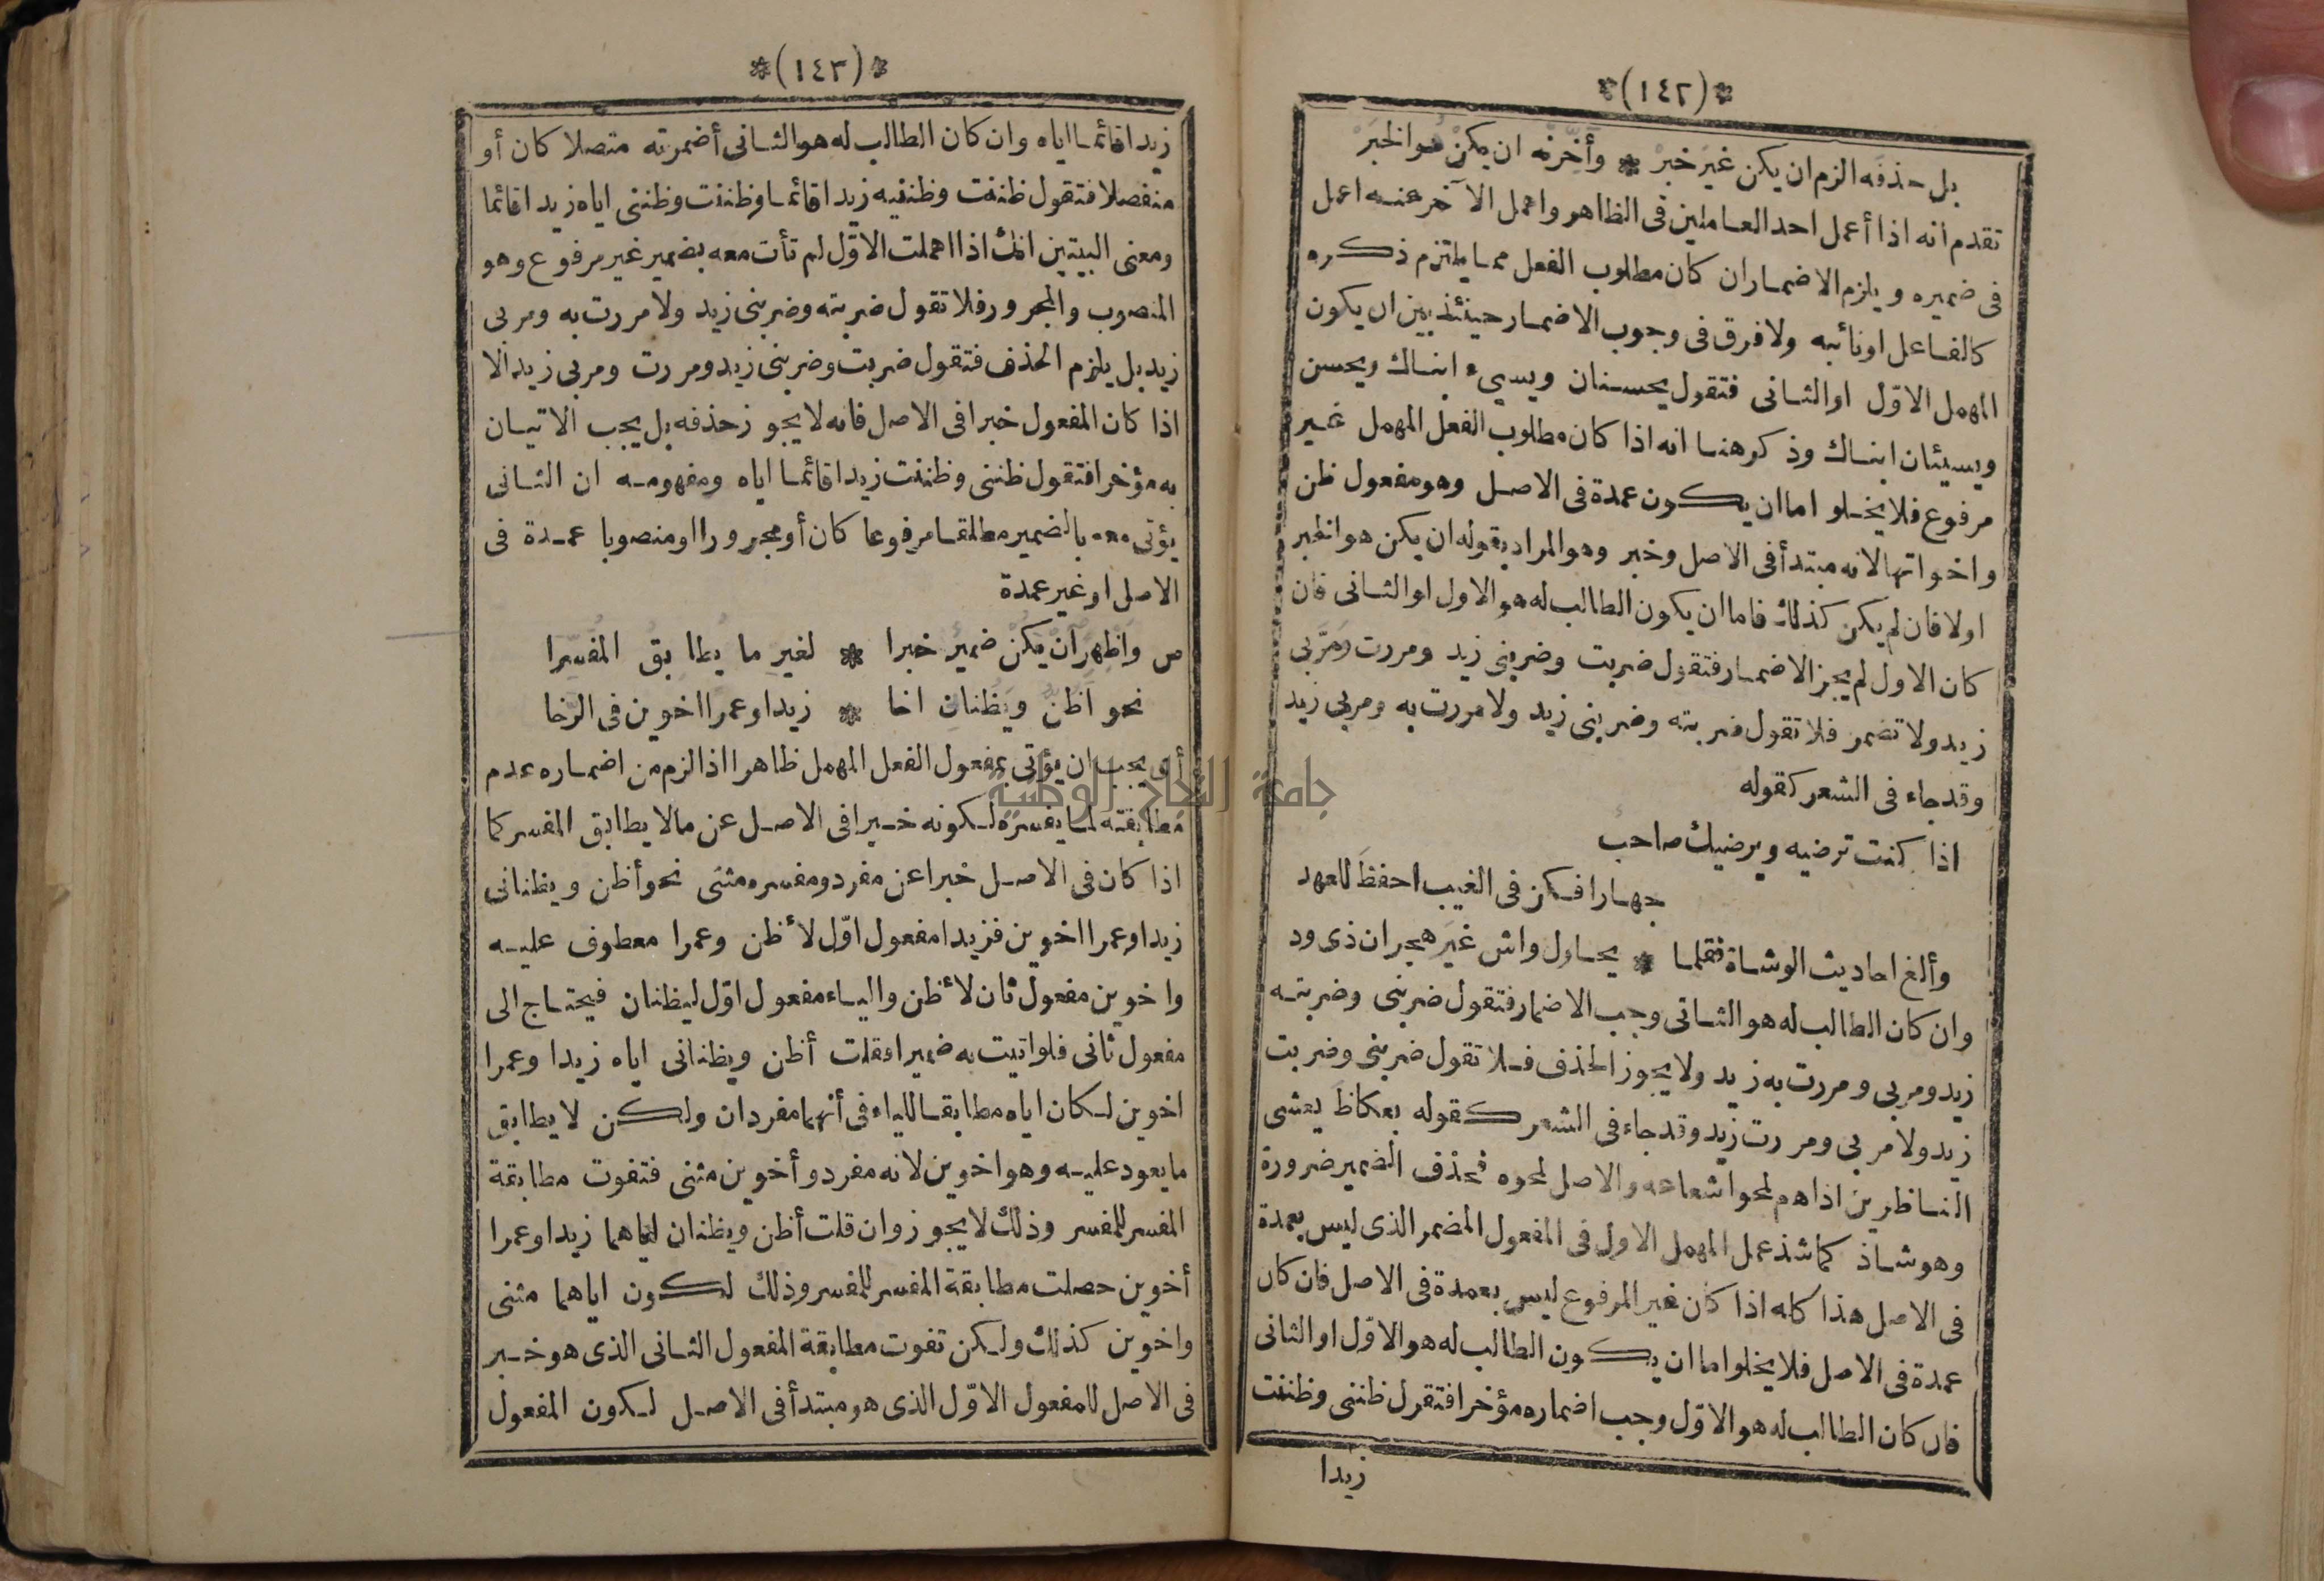 *(١٤٢)*
بل حذفه الزم ان يكن غير خبر * وأخرنه ان يكن هو الخبر
تقدم انه اذا أعمل احد العاملين فى الظاهر واهمل الآخر عنه اعمل
فى ضميره ويلزم الاضمار ان كان مطلوب الفعل مما يلتزم ذكره
كالفاعل اونائبه ولافرق فى وجوب الاضمار حينئذ بين ان يكون
المهمل الاوّل اوالثانى فتقول يحسنان ويسىء ابناك ويحسن
ويسيئان ابناك وذكر هنا انه اذا كان مطلوب الفعل المهمل غير
مرفوع فلا يخلو اما ان يكون عمدة فى الاصل وهو مفعول ظن
واخواتها لانه مبتدأ فى الاصل وخبر وهو المراد بقوله ان يكن هو الخبر
اولا فان لم يكن كذلك فاما ان يكون الطالب له هو الاول او الثانى فان
كان الاول لم يجز الاضمار فتقول ضربت وضربنى زيد ومررت ومرّبى
زيد ولا تضمر فلا تقول ضربته وضربنى زيد ولا مررت به ومربى زيد
وقد جاء فى الشعر كقوله
اذا كنت ترضيه ويرضيك صاحب
جهارا فكن فى الغيب احفظ للعهد
وألغ احاديث الوشاة فقلما * يحاول واش غير هجران ذى ود
وان كان الطالب له هو الثانى وجب الاضمار فتقول ضربنى وضربته
زيد ومربى ومررت به زيد ولا يجوز الحذف فلا تقول ضربنى وضربت
زيد ولا مربى ومررت زيد وقد جاء فى الشعر كقوله بعكاظ يعشى
الناظرين اذا هم لمحوا شعاعه والاصل لمحوه فحذف الضمير ضرورة
وهو شاذ كما شذ عمل المهمل الاول فى المفعول المضمر الذى ليس بعمدة
فى الاصل هذا كله اذا كان غير المرفوع ليس بعمدة فى الاصل فان كان
عمدة فى الاصل فلا يخلو اما ان يكون الطالب له هو الاوّل او الثانى
فان كان الطالب له هو الاوّل وجب اضماره مؤخرا فتقول ظننى وظننت
زيدا
*(١٤٣)*
زيدا قائما اياه وان كان الطالب له هو الثانى أضمرته متصلا كان أو
منفصلا فتقول ظننت وظننيه زيدا قائما وظننت وظننى اياه زيدا قائما
ومعنى البيتين انك اذا اهملت الاوّل لم تأت معه بضمير غير مرفوع وهو
المنصوب والمجرور فلا تقول ضربته وضربنى زيد ولا مررت به ومربى
زيد بل يلزم الحذف فتقول ضربت وضربنى زيد ومررت ومربى زيد الا
اذا كان المفعول خبرا فى الاصل فانه لا يجوز حذفه بل يجب الاتيان
به مؤخرا فتقول ظننى وظننت زيدا قائما اياه ومفهومه ان الثانى
يؤتى معه بالضمير مطلقا مرفوعا كان أو مجرورا او منصوبا عمدة فى
الاصل او غير عمدة
ص وَاَظهر ان يكن ضمير خبرا * لغير ما يطابق المفسرا
نحو اظنّ ويظنان اخا * زيدا وعمرا اخوين فى الرخا
أى يجب ان يؤتى بمفعول الفعل المهمل ظاهرا اذا لزم من اضماره عدم
مطابقته لما يفسره لكونه خبرا فى الاصل عن مالا يطابق المفسر كما
اذا كان فى الاصل خبرا عن مفرد ومفسره مثنى نحو أظن ويظنانى
زيدا وعمرا اخوين فزيدا مفعول اوّل لأظن وعمرا معطوف عليه
واخوين مفعول ثان لأظن والياء مفعول اوّل ليظنان فيحتاج الى
مفعول ثانى فلو اتيت به ضميرا فقلت أظن ويظنانى اياه زيدا وعمرا
اخوين لكان اياه مطابقا للياء فى أنهما مفردان ولكن لا يطابق
ما يعود عليه وهو اخوين لانه مفرد وأخوين مثنى فتفوت مطابقة
المفسر للمفسر وذلك لا يجوز وان قلت أظن ويظنان اياهما زيدا وعمرا
أخوين حصلت مطابقة المفسر للمفسر وذلك لكون اياهما مثنى
واخوين كذلك ولكن تفوت مطابقة المفعول الثانى الذى هو خبر
فى الاصل للمفعول الاوّل الذى هو مبتدأ فى الاصل لكون المفعول
جامعة النجاح الوطنية